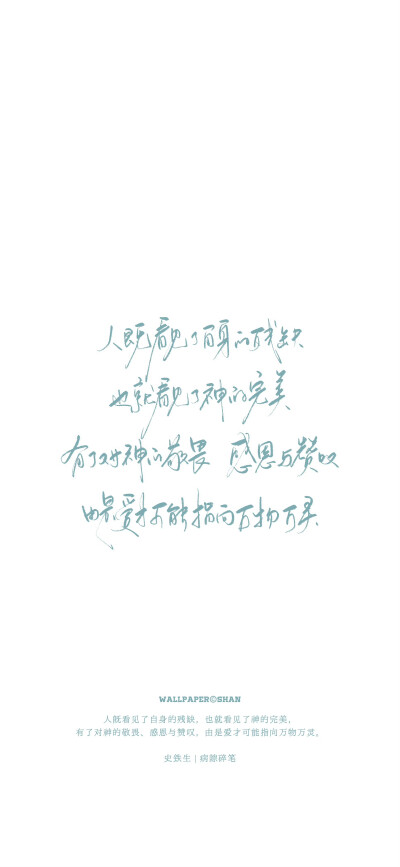 人既看见了自身的残缺
也就看见了神的完美
有了对神的敬畏 感恩与赞叹
由是爱才可能指向万物万灵
WALLPAPER©SHAN
人既看见了自身的残缺，也就看见了神的完美，
有了对神的敬畏、感恩与赞叹，由是爱才可能指向万物万灵。
史铁生 | 病隙碎笔